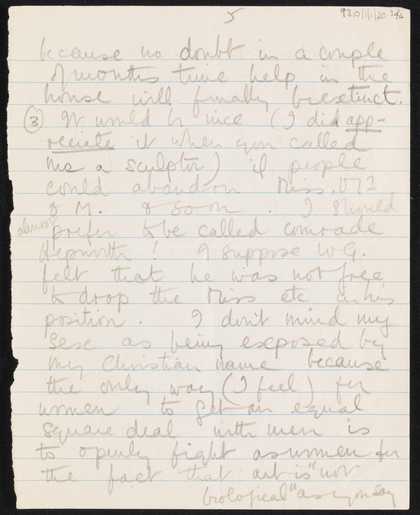 5
because no doubt in a couple
of months time help in the
house will finally be extinct.
(3) It would be nice (I did app-
reciate it when you called
me a sculptor) if people
could abandon Miss.
& M. & so on. I should
almost
prefer to be called comrade
Hepworth! I suppose W.G.
felt that he was not free
to drop the Miss etc in his
position. I don't mind my
sex as being exposed by
my Christian name because
the only way (I feel) for
women to get an equal
square deal with men is
to openly fight as women for
the fact that art is "not
biological" as you say